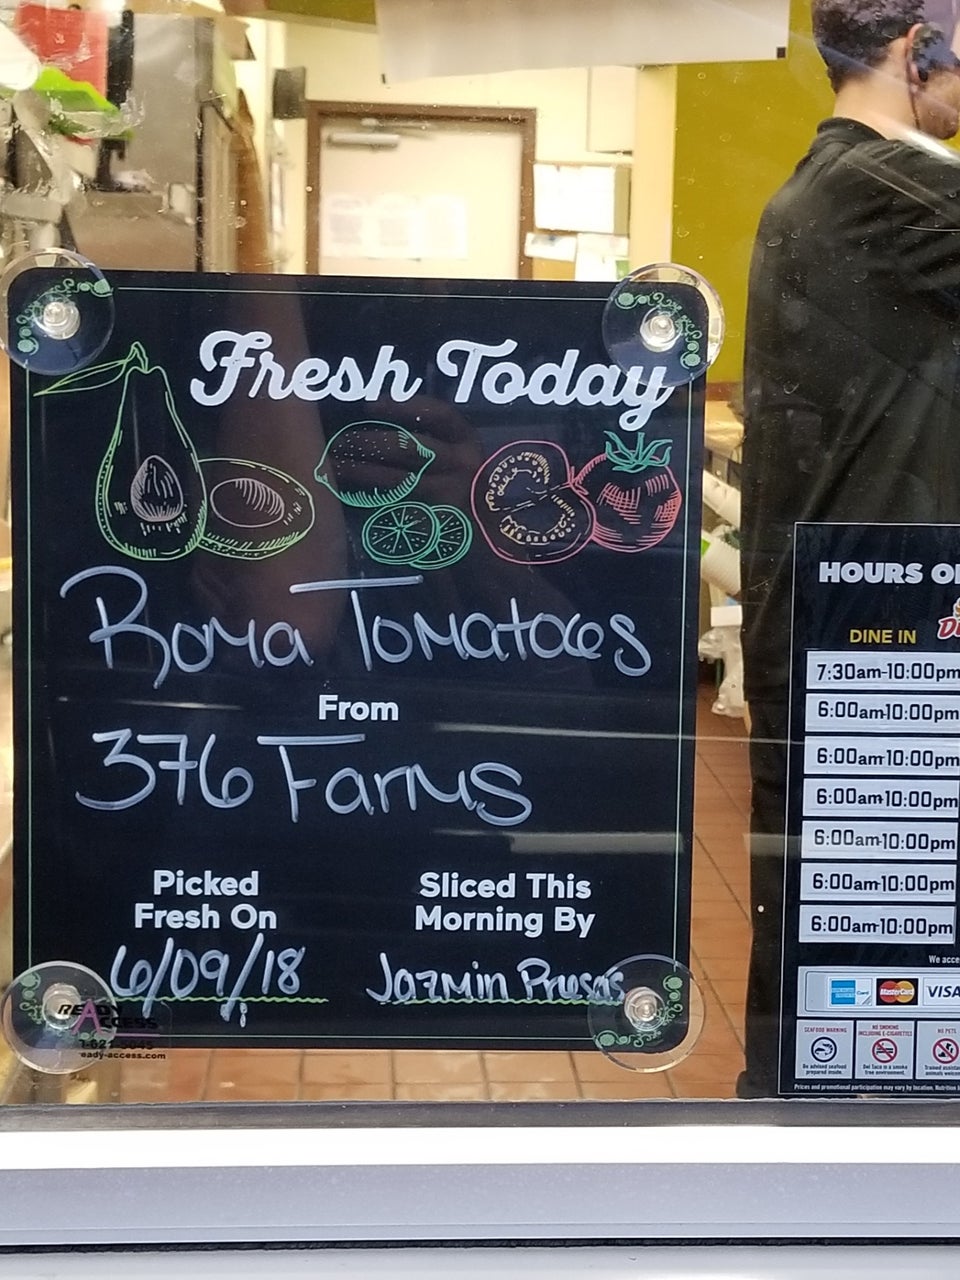 Fresh Today
Roma Tomatoes
From
376 Farms
Picked
Fresh On
6/09/18
Sliced This
Morning By
Jazmin
READY
ACCESS
eady-access.com
HOURS O
DINE IN
7:30am-10:00pm
6:00am-10:00pm
6:00am-10:00pm
6:00am-10:00pm
6:00am-10:00pm
6:00am-10:00pm
6:00am-10:00pm
We acce
MasterCard
VISA
SEAFOOD WARNING
Be advised seafood
prepared inside.
NO SMOKING
INCLUDING E-CIGARETTES
Del Taco is a smoke
free environment.
NO PETS
Trained assista
animals welcom
Prices and promotional participation may vary by location. Nutrition